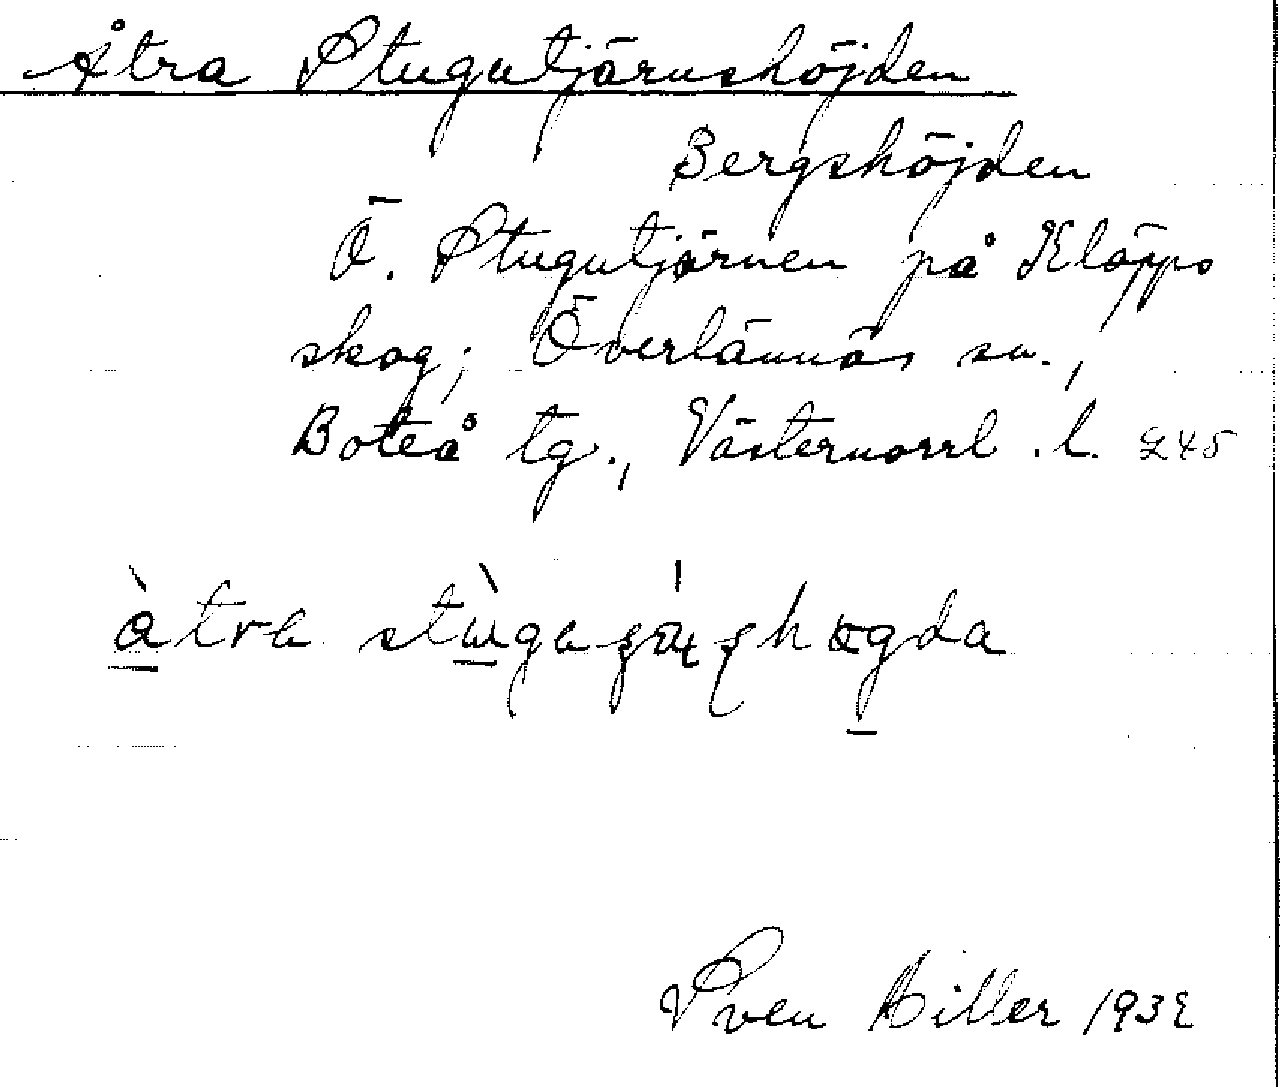 Åtra Stugutjärnshöjden
Bergshöjden
Ö. Stugutjärnen på Kläpps
skog; Överlännäs sn.,
Boteå tg., Västernorrl. l. £45
Sven Hiller 1932